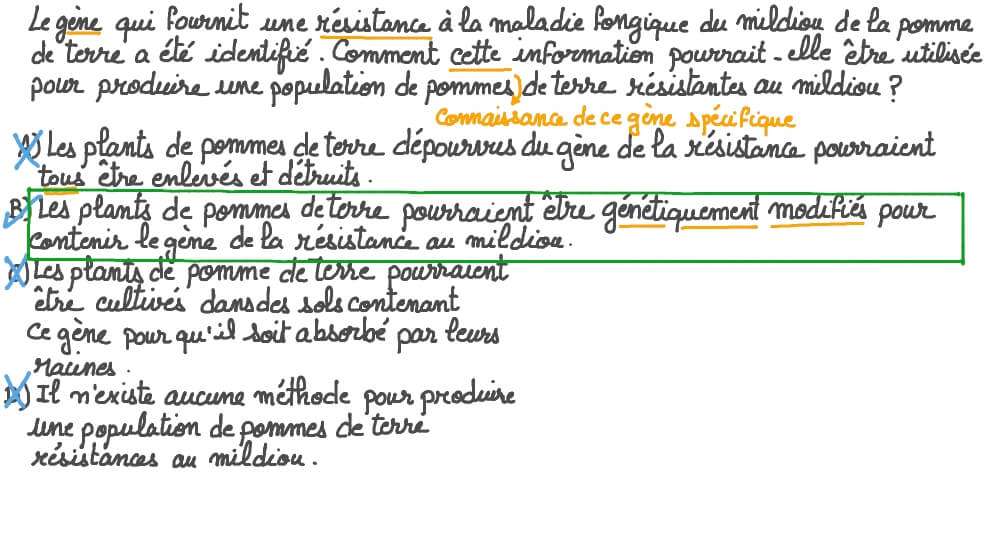 Le gène qui fournit une résistance à la maladie fongique du mildiou de la pomme
de terre a été identifié. Comment cette information pourrait-elle être utilisée
pour produire une population de pommes de terre résistantes au mildiou ?
Connaissance de ce gène spécifique
A) Les plants de pommes de terre dépourvus du gène de la résistance pourraient
tous être enlevés et détruits.
B) Les plants de pommes de terre pourraient être génétiquement modifiés pour
contenir le gène de la résistance au mildiou.
C) Les plants de pomme de terre pourraient
être cultivés dans des sols contenant
ce gène pour qu'il soit absorbé par leurs
racines.
D) Il n'existe aucune méthode pour produire
une population de pommes de terre
résistances au mildiou.